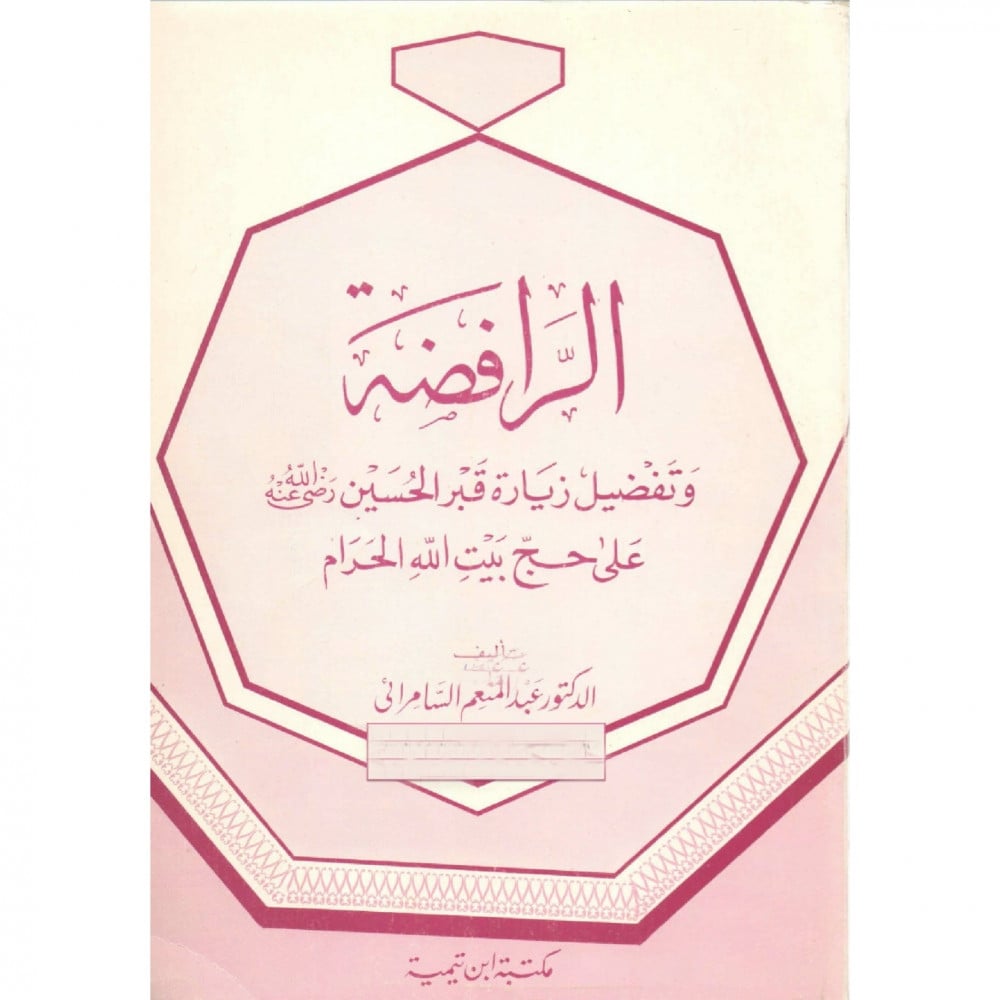 الرَّافِضَة
وَتَفْضِيل زيَارة قَبْر الحُسَيْن رَضْيَ اللهُ عَنْهُ
عَلىٰ حجّ بَيْتِ اللهِ الحَرَام
تأليف
الدكتور عَبْد المنعِم السَّامرائى
مكتبة ابن تيمية